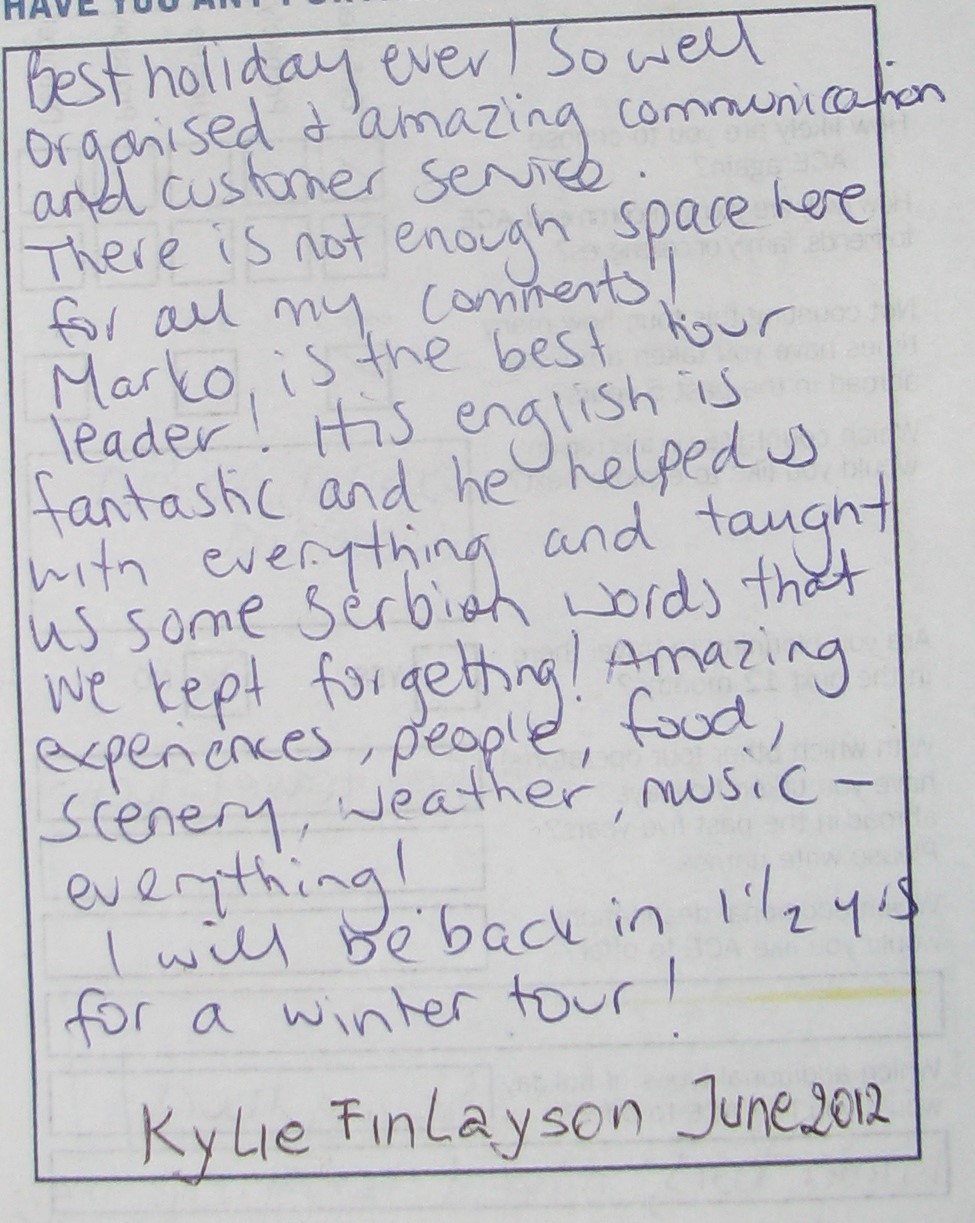 HAVE YOU ANY
Best holiday ever! So well
organised & amazing communication
and customer service.
There is not enough space here
for all my comments!
Marko, is the best tour
leader! His english is
fantastic and he helped us
with everything and taught
us some Serbian words that
we kept forgetting! Amazing
experiences, people, food,
scenery, weather, music -
everything!
I will be back in 1 1/2 yrs
for a winter tour!
Kylie Finlayson June 2012